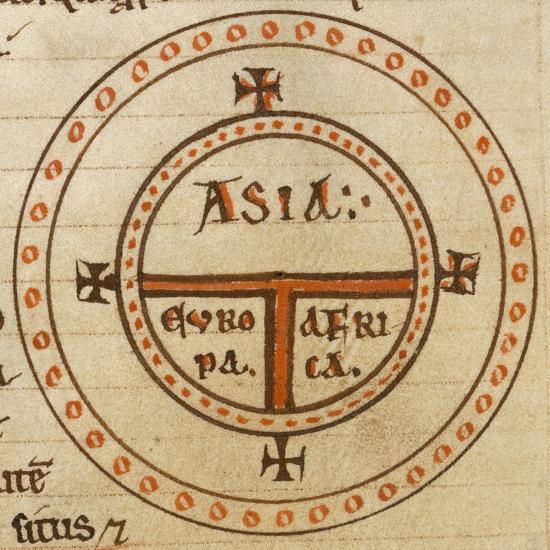 ASIA:·
EVRO
PA.
AFRI
CA.
itē
situs ⁊